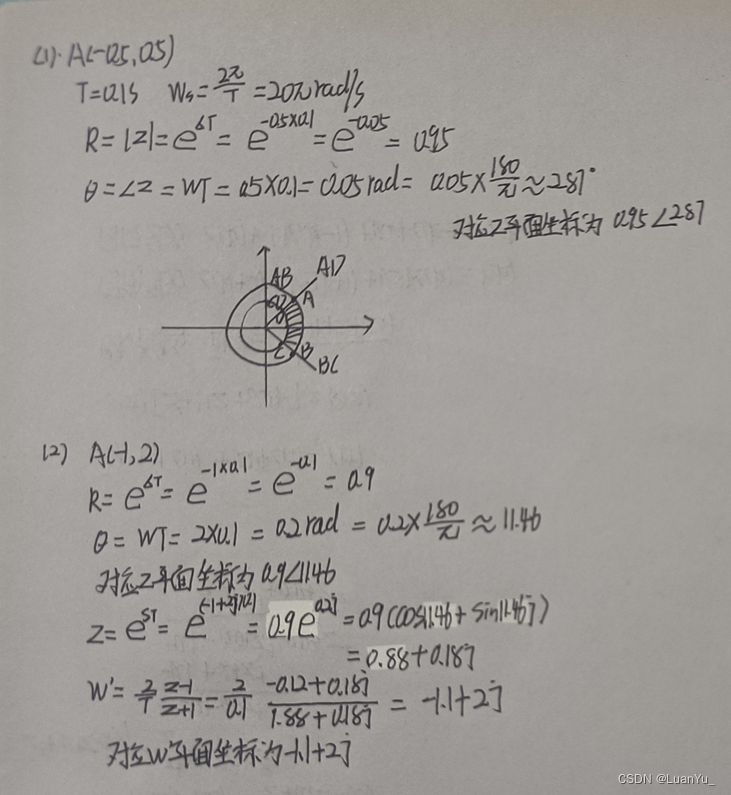 (1). A(-0.5, 0.5)
T=0.1S Ws=2π/T=20π rad/s
R=|Z|=e^δT=e^-0.5×0.1=e^-0.05=0.95
θ=∠Z=WT=0.5×0.1=0.05 rad=0.05×180/π≈2.87°
对应Z平面坐标为 0.95∠2.87
AB AD
A
C B
BC
(2) A(-1,2)
R=e^δT=e^-1×0.1=e^-0.1=0.9
θ=WT=2×0.1=0.2rad=0.2×180/π≈11.46
对应Z平面坐标为0.9∠11.46
Z=e^ST=e^(-1+2j)×0.1=0.9e^0.2j=0.9(cos11.46+sin11.46j)
=0.88+0.18j
W'=2/T Z-1/Z+1=2/0.1 -0.12+0.18j/1.88+0.18j=-1.1+2j
对应W'平面坐标为-1.1+2j
CSDN @LuanYu_